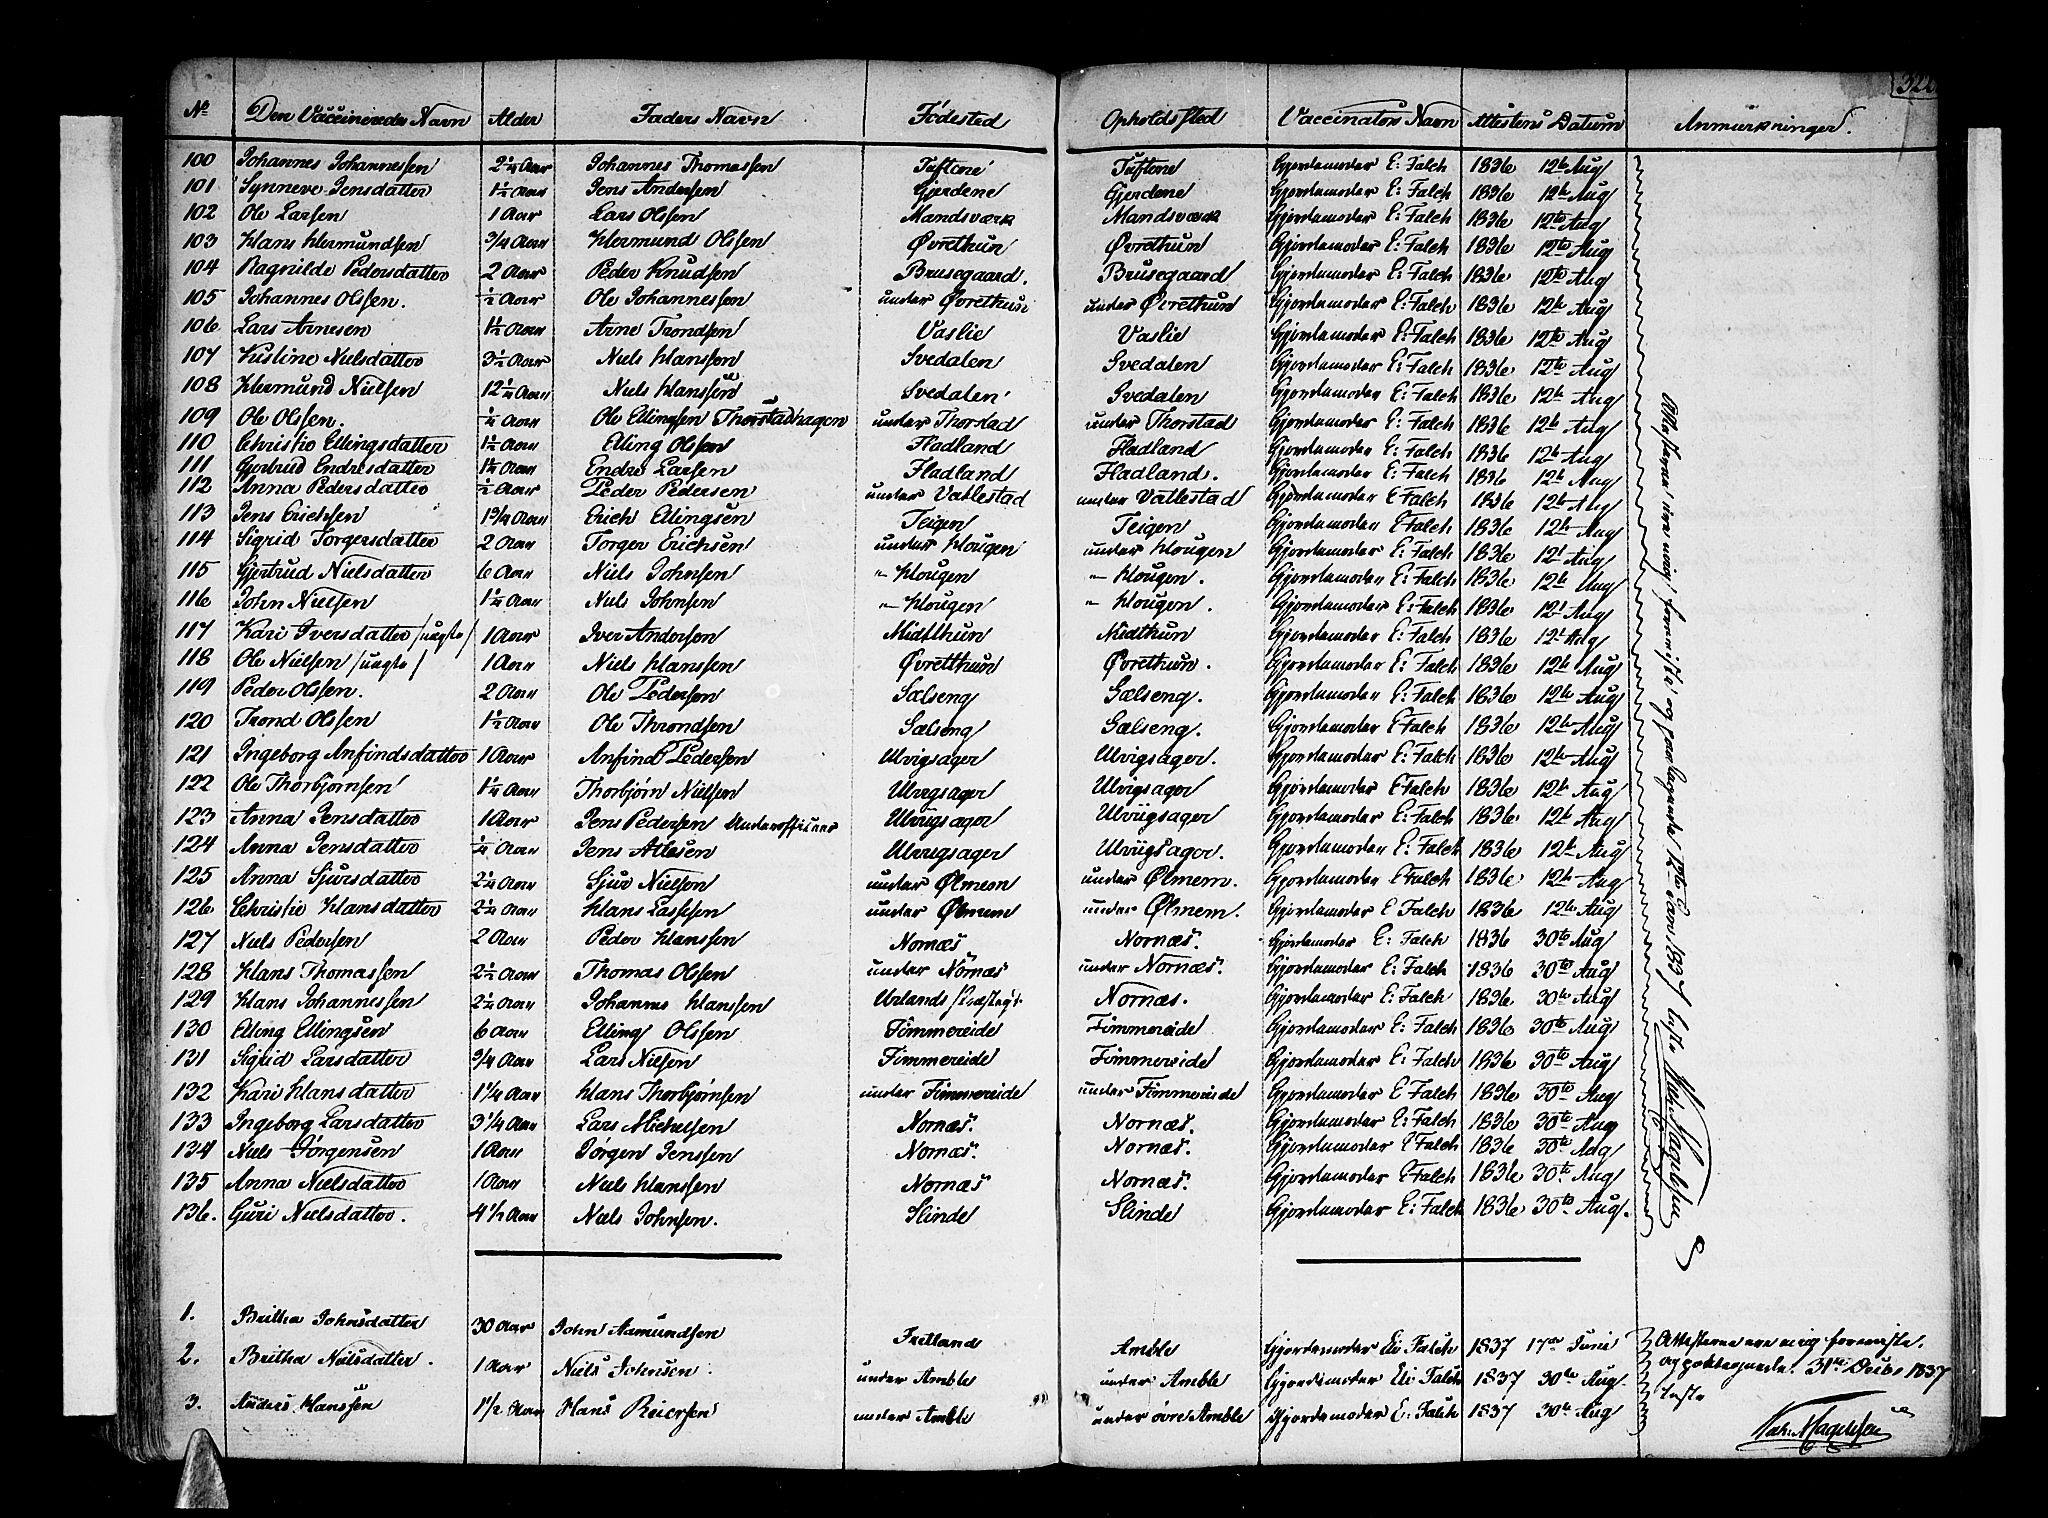 № Den Vaccineredes Navn Alder Faders Navn Fødested Opholds Sted Vaccinators Navn Attestens Datum Anmærkninger.
100 Johannes Johannessen 2¼ Aar Johannes Thomassen Tuftene Tuftene Gjordemoder E: Falch 1836 12te Aug
101 Synneve Jensdatter 1½ Aar Jens Andersen Gjerdene Gjerdene Gjordemoder E: Falch 1836 12te Aug
102 Ole Larsen 1 Aar Lars Olssen Mandsværk Mandsværk Gjordemoder E: Falch 1836 12te Aug
103 Hans Hermundsen 3/4 Aar Hermund Olssen Øvrethun Øvrethun Gjordemoder E: Falch 1836 12te Aug
104 Ragnilde Pedersdatter 2 Aar Peder Knudsen Brusegaard. Brusegaard Gjordemoder E: Falch 1836 12te Aug
105 Johannes Olssen. ½ Aar Ole Johannessen under Øvrethun under Øvrethun Gjordemoder E: Falch 1836 12te Aug
106 Lars Arnesen 1½ Aar Arne Trondsen Vaslie Vaslie Gjordemoder E: Falch 1836 12te Aug
107 Kistine Nielsdatter 3½ Aar Niels Hanssen Svedalen Svedalen Gjordemoder E: Falch 1836 12te Aug
108 Hermund Nielsen 12¼ Aar Niels Hanssen Svedalen Svedalen Gjordemoder E: Falch 1836 12te Aug
109 Ole Olssen. ¼ Aar Ole Ellingsen Thorstadhagen under Thorstad under Thorstad Gjordemoder E: Falch 1836 12te Aug
110 Christie Ellingsdatter 1½ Aar Elling Olssen Fladland Fladland Gjordemoder E: Falch 1836 12te Aug
111 Gjertrud Endresdatter 1¼ Aar Endre Larsen Fladland Fladland. Gjordemoder E: Falch 1836 12te Aug
112 Anna Pedersdatter ½ Aar Peder Pedersen under Vallestad under Vallestad Gjordemoder E Falch 1836 12te Aug
113 Jens Erichsen 1¾ Aar Erich Ellingsen Teigen Teigen Gjordemoder E Falch 1836 12te Aug
114 Sigrid Torgersdatter 2 Aar Torger Erichsen under Hougen under Hougen Gjordemoder E: Falch 1836 12te Aug
115 Gjertrud Nielsdatter 6 Aar Niels Johnsen "– Hougen "– Hougen. Gjordemoder E: Falch 1836 12te Aug
116 John Nielsen 1¼ Aar Niels Johnsen "– Hougen "– Hougen. Gjordemoder E: Falch 1836 12te Aug
117 Kari Iversdatter /uægte/ 1 Aar Iver Andersen Midthun Midthun Gjordemoder E: Falch 1836 12te Aug
118 Ole Nielsen /uægte/ 1 Aar Niels Hanssen Øvretthun Øvrethun. Gjordemoder E: Falch 1836 12te Aug
119 Peder Olssen. 2 Aar Ole Pedersen Sælseng Sælseng. Gjordemoder E: Falch 1836 12te Aug
120 Trond Olssen 1½ Aar Ole Throndsen Sælseng Sælseng. Gjordemoder E Falch 1836 12te Aug
121 Ingeborg Anfindsdatter 1 Aar Anfind Pedersen Ulvigsager Ulvigsager. Gjordemoder E: Falch 1836 12te Aug
122 Ole Thorbjørnsen 1¼ Aar Thorbjørn Nielsen Ulvigsager Ulvigsager Gjordemoder E Falch 1836 12te Aug
123 Anna Jensdatter 1 Aar Jens Pedersen Underofficeer Ulvigsager Ulvigsager Gjordemoder E: Falch 1836 12te Aug
124 Anna Jensdatter ¼ Aar Jens Atlesen Ulvigsager Ulvigsager. Gjordemoder E: Falch 1836 12te Aug
125 Anna Sjursdatter 2¼ Aar Sjur Nielsen under Ølmem under Ølmem. Gjordemoder E Falch 1836 12te Aug
126 Christie Hansdatter 2¼ Aar Hans Lassesen under Ølmem under Ølmem. Gjordemoder E Falch 1836 12te Aug
127 Niels Pedersen 2 Aar Peder Hanssen Nornæs. Nornæs. Gjordemoder E: Falch 1836 30te Aug
128 Hans Thomassen 2½ Aar Thomas Olssen under Nornæs under Nornæs. Gjordemoder E: Falch 1836 30te Aug
129 Hans Johannessen 2¼ Aar Johannes Hanssen Urlands Præstegj. Nornæs. Gjordemoder E: Falch 1836 30te Aug
130 Elling Ellingsen 6 Aar Elling Olssen Fimmereide Fimmereide Gjordemoder E: Falch 1836 30te Aug
131 Sigrid Larsdatter 3/4 Aar Lars Nielsen Fimmereide Fimmereide Gjordemoder E: Falch 1836 30te Aug
132 Kari Hansdatter 1¼ Aar Hans Thorbjørnsen under Fimmereide under Fimmereide Gjordemoder E Falch 1836 30te Aug
133 Ingeborg Larsdatter 3¼ Aar Lars Michelsen Nornæs. Nornæs. Gjordemoder E: Falch 1836 30te Aug
134 Niels Jørgensen 1 Aar Jørgen Jenssen Nornæs. Nornæs. Gjordemoder E Falch 1836 30te Aug
135 Anna Nielsdatter 1 Aar Niels Hanssen Nornæs Nornæs. Gjordemoder E Falch 1836 30te Aug
136. Guri Nielsdatter. 4½ Aar Niels Johnsen. Slinde Slinde Gjordemoder E: Falch 1836 30te Aug.
Attesterne ere mig foreviste og paategnede 12te Jan 1837 teste
1. Britha Johnsdatter 30 Aar John Aamundsen Fretland Amble Gjordemoder E: Falch 1837 17de Juni
2. Britha Nielsdatter. 1 Aar Niels Johnsen. under Amble under Amble Gjordemoder E: Falch 1837 30te Aug.
3. Anders Hanssen 1½ Aar Hans Reiersen under Amble under øvre Amble Gjordemoder E: Falch 1837 30te Aug
Attesterne ere mig foreviste.
og paategnede. 31te Decbr 1837
teste